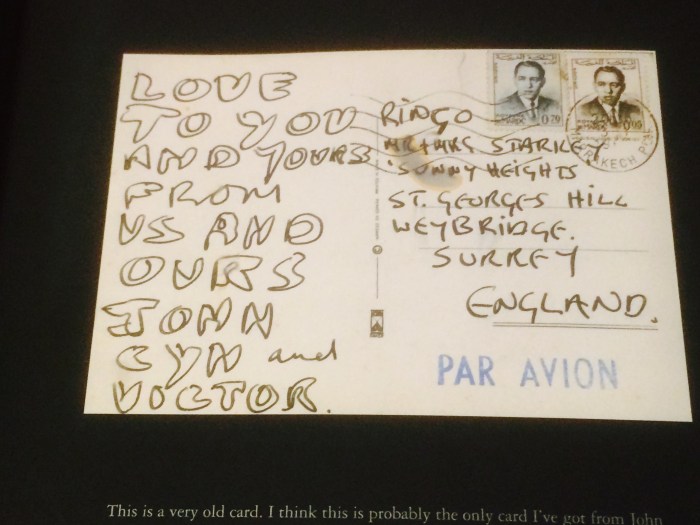 LOVE
TO YOU
AND YOURS
FROM
US AND
OURS
JOHN
CYN and
VICTOR.
RINGO
MR+MRS STARKEY
'SUNNY HEIGHTS
ST. GEORGES HILL
WEYBRIDGE.
SURREY
ENGLAND.
0,70
MARRAKECH
PAR AVION
This is a very old card. I think this is probably the only card I've got from John